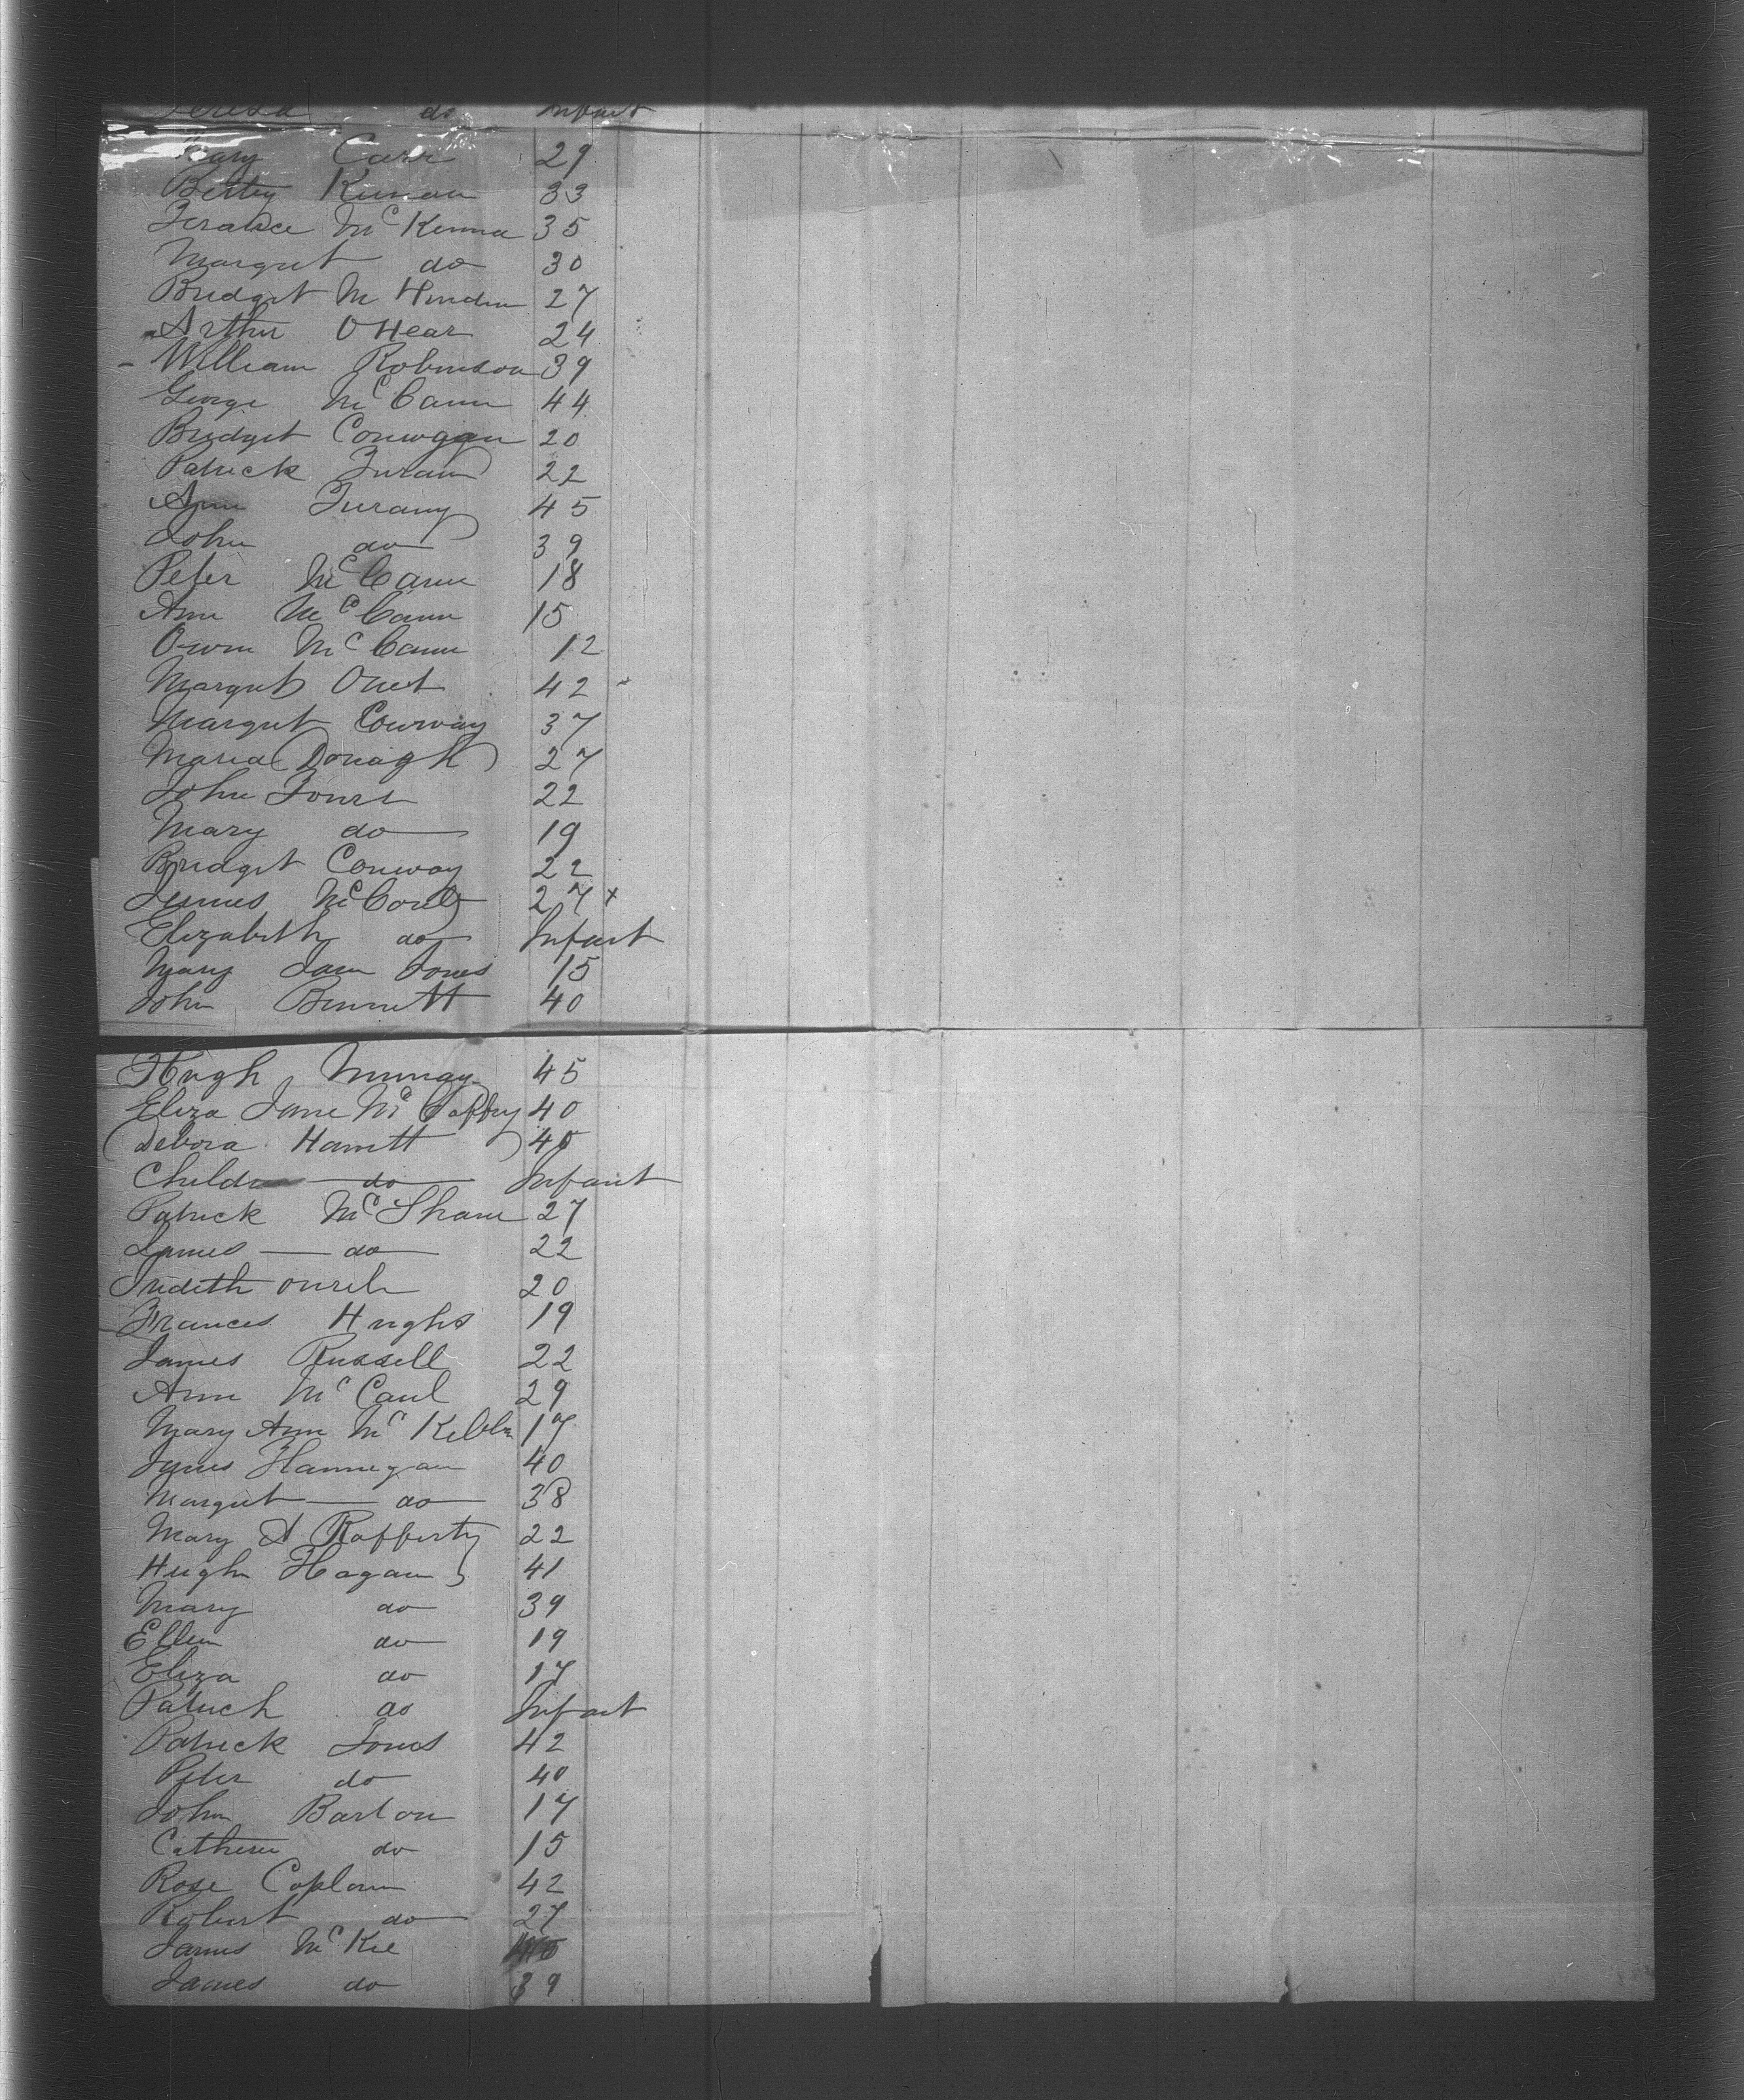 Teresa do Infant
Mary Carr 29
Betty 33
McKenna 35
Margret do 30
Bridget 27
Arthur O Hear 24
William Robinson 39
George McCann 44
Bridget 20
Patrick 22
Ann 45
John do 39
Peter McCann 18
Ann McCann 15
Owen McCann 12
Margret 42
Margret Conway 37
Maria Donagh 27
John 22
Mary do 19
Bridget Conway 22
James 27 x
Elizabeth do Infant
Mary Jane Jones 15
John Bennett 40
Hugh Murray 45
Eliza Jane 40
Debora
Children do Infant
Patrick McShane 27
James do 22
Judith 20
Frances Hughs 19
James Russell 22
Ann McCaul 29
Mary Ann 17
James Hannegan 40
Margret do 38
Mary A Rafferty 22
Hugh Hagan 41
Mary do 39
Ellen do 19
Eliza do 17
Patrick do Infant
Patrick Jones 42
Peter do 40
John Barton 17
Catherine do 15
Rose 42
Robert do 27
James McKee
James do 39